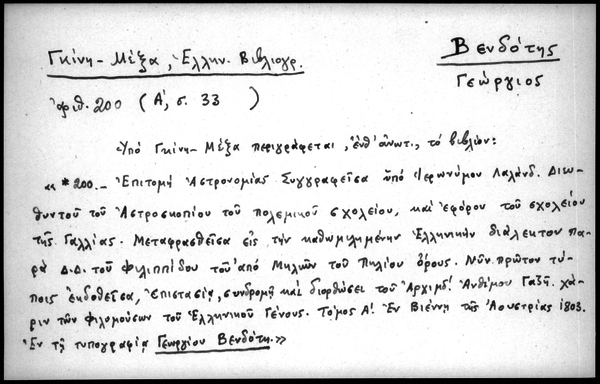 Γκίνη - Μέξα, Ἑλλην. Βιβλιογρ.
Βενδότης
Γεώργιος
ἀριθ. 200 (Α΄, σ. 33 )
Ὑπό Γκίνη - Μέξα περιγράφεται, ἔνθ' ἀνωτ., τό βιβλίον:
« *200.- Ἐπιτομή Ἀστρονομίας Συγγραφεῖσα ὑπό Ἱερωνύμου Λαλάνδ. Διευ-
θυντοῦ τοῦ Ἀστροσκοπίου τοῦ πολεμικοῦ σχολείου, καί ἐφόρου τοῦ σχολείου
τῆς Γαλλίας. Μεταφρασθεῖσα εἰς τήν καθωμιλημένην Ἑλληνικήν διάλεκτον πα-
ρά Δ.Δ. τοῦ Φιλιππίδου τοῦ ἀπό Μηλιῶν τοῦ Πηλίου ὄρους. Νῦν πρῶτον τύ-
ποις ἐκδοθεῖσα, ἐπιστασίᾳ, συνδρομῇ καί διορθώσει τοῦ Ἀρχιμδ΄ Ἀνθίμου Γαζῆ. χά-
ριν τῶν φιλομούσων τοῦ Ἑλληνικοῦ Γένους. Τόμος Α΄. Ἐν Βιέννῃ τῆς Ἀουστρίας 1803.
Ἐν τῇ τυπογραφίᾳ Γεωργίου Βενδότη.»